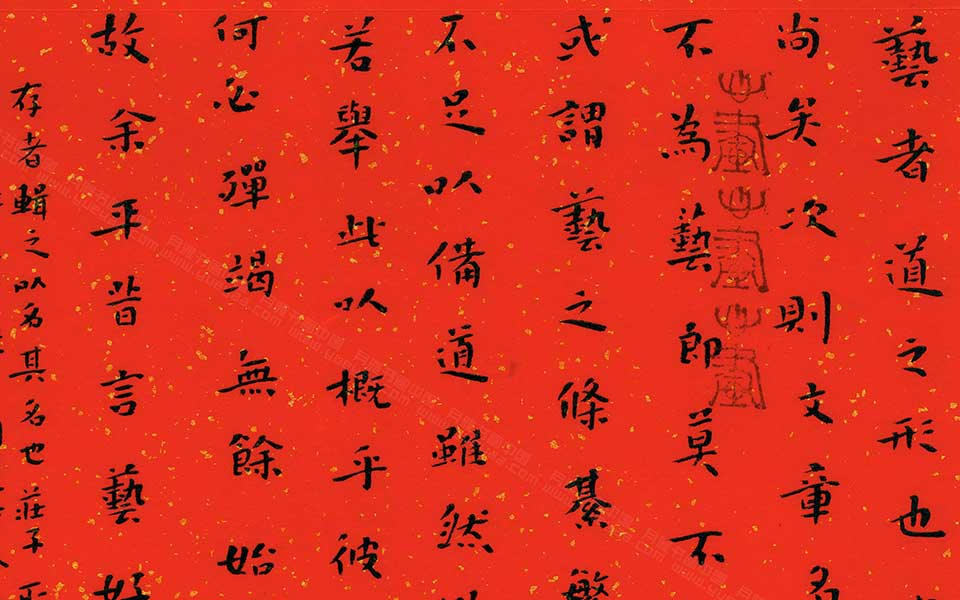 藝者道之形也
尚矣次則文章名
不為藝即莫不
或謂藝之條綦繁
不足以備道雖然
若舉此以概乎彼
何必殫竭無餘始
故余平昔言藝好
存者輯之以名其名也莊子